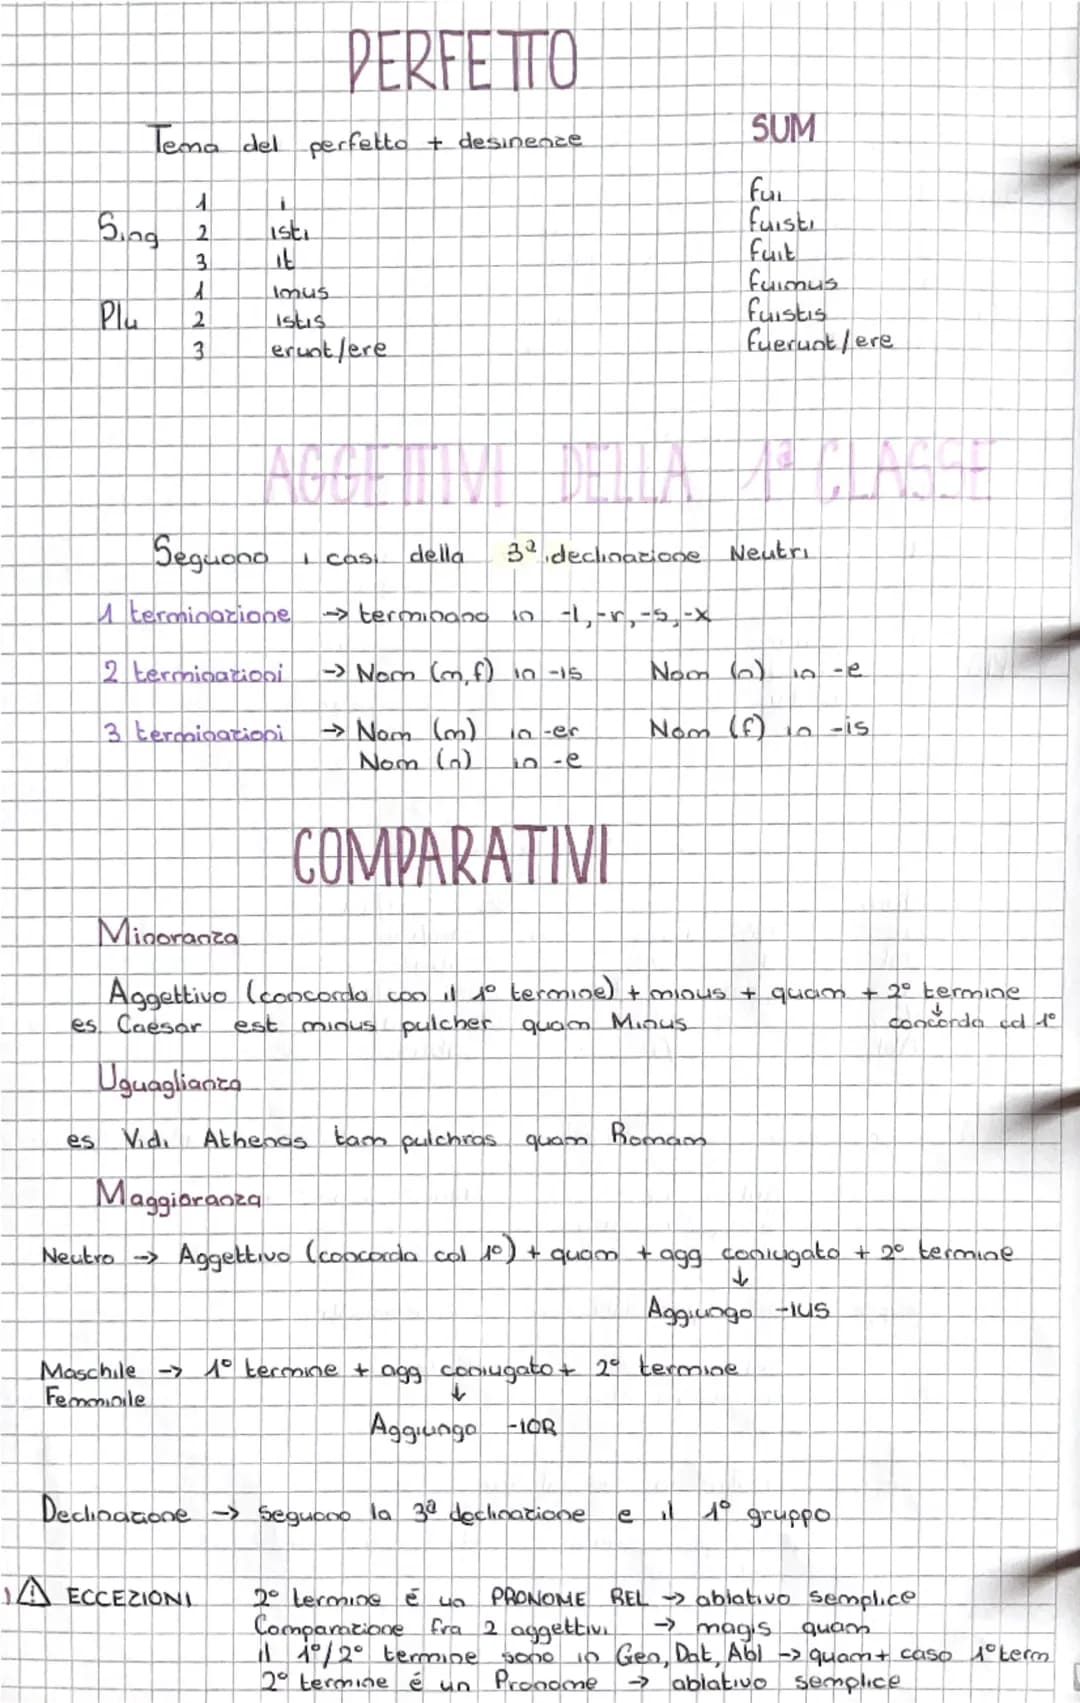 PERFETTO
Tema del perfetto + desinenze SUM
Sing 1 i fui
2 isti fuisti
3 it fuit
Plu 1 imus fuimus
2 istis fuistis
3 erunt/ere fuerunt/ere
AGGETTIVI DELLA 1ª CLASSE
Seguono i casi della 3ª declinazione Neutri
1 terminazione -> terminano in -l, -r, -s, -x
2 terminazioni -> Nom (m,f) in -is Nom (n) in -e
3 terminazioni -> Nom (m) in -er Nom (f) in -is
Nom (n) in -e
COMPARATIVI
Minoranza
Aggettivo (concorda con il 1° termine) + minus + quam + 2° termine
es. Caesar est minus pulcher quam Minus ↓ concorda col 1°
Uguaglianza
es Vidi Athenas tam pulchras quam Romam
Maggioranza
Neutro -> Aggettivo (concorda col 1°) + quam + agg coniugato + 2° termine
↓
Aggiungo -IUS
Maschile -> 1° termine + agg coniugato + 2° termine
Femminile ↓
Aggiungo -IOR
Declinazione -> seguono la 3ª declinazione e il 1° gruppo
⚠ ECCEZIONI 2° termine é un PRONOME REL -> ablativo semplice
Comparazione fra 2 aggettivi -> magis quam
il 1°/2° termine sono in Gen, Dat, Abl -> quam + caso 1° term
2° termine é un Pronome -> ablativo semplice